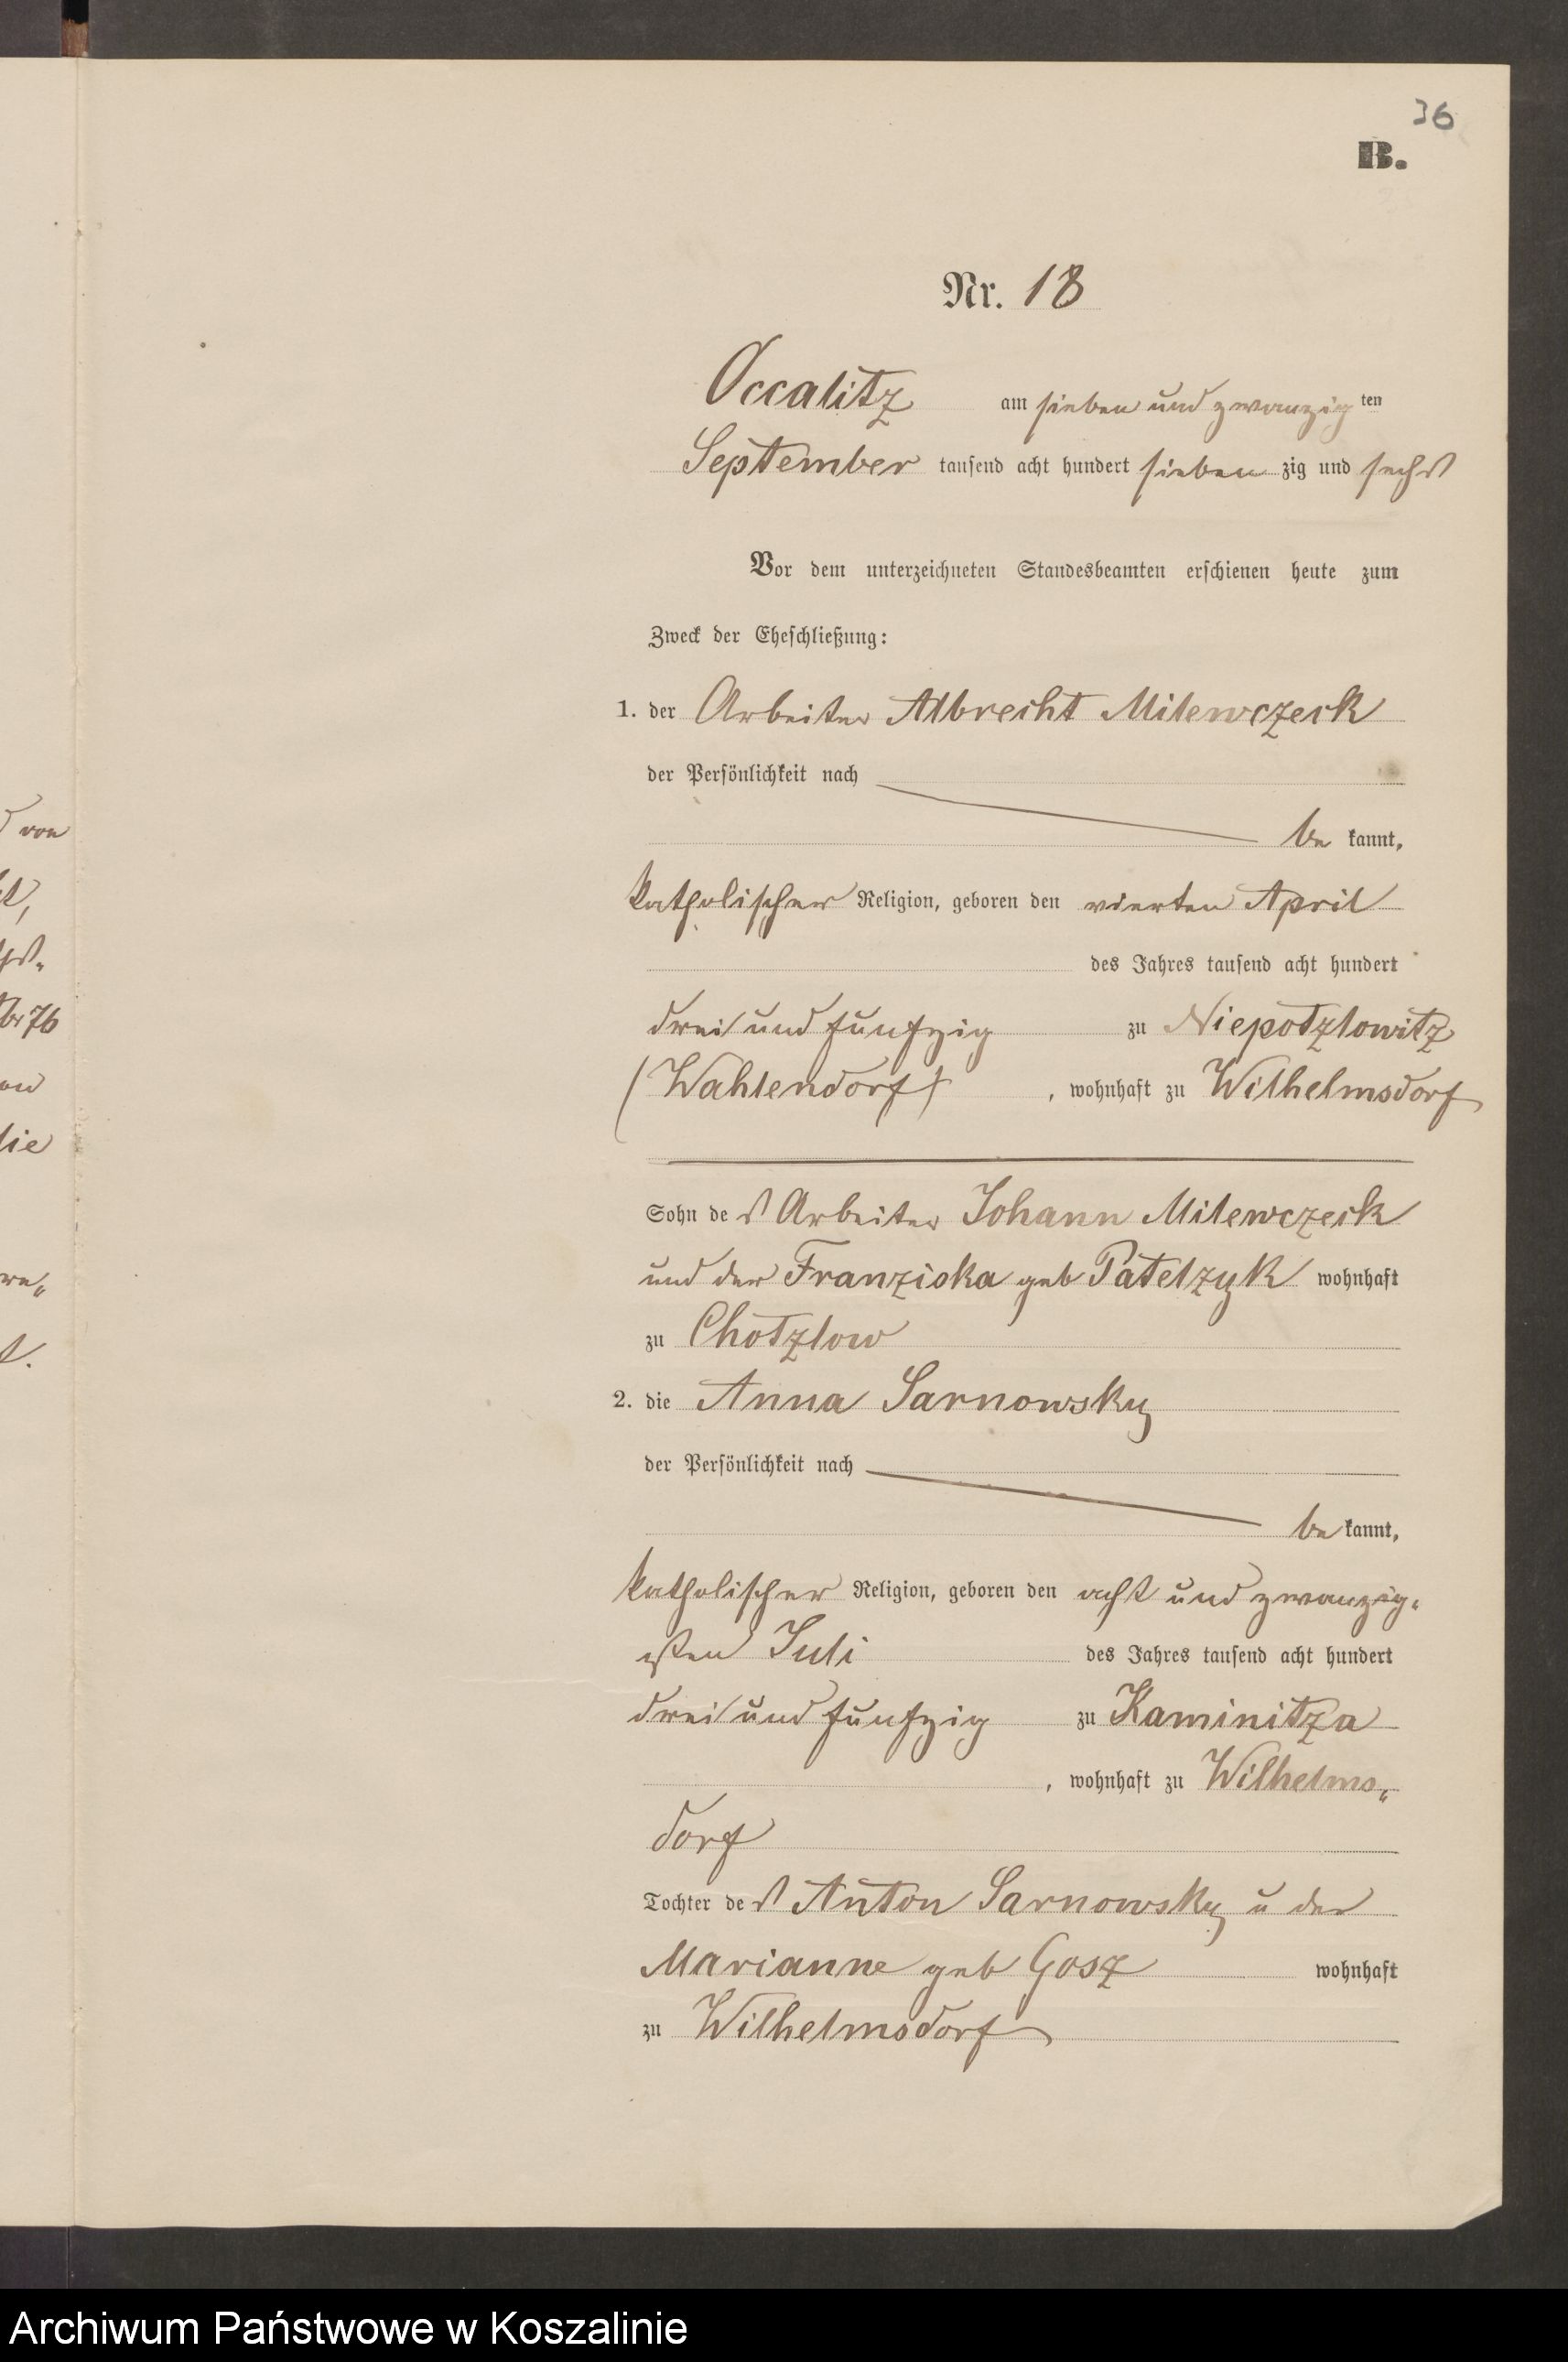 36
B.
Nr. 18
Occalitz am sieben und zwanzig ten
September tausend acht hundert sieben zig und sechs
Vor dem unterzeichneten Standesbeamten erschienen heute zum
Zweck der Eheschließung:
1. der Arbeiter Albrecht Milewczeck
der Persönlichkeit nach
be kannt,
katholischer Religion, geboren den vierten April
des Jahres tausend acht hundert
drei und funfzig zu Niepotzlowitz
(Wahlendorf) , wohnhaft zu Wilhelmsdorf
Sohn de s Arbeiter Johann Milewczeck
und der Franziska geb Patelzyk wohnhaft
zu Chotzlow
2. die Anna Sarnowsky
der Persönlichkeit nach
be kannt,
katholischer Religion, geboren den acht und zwanzig-
sten Juli des Jahres tausend acht hundert
drei und funfzig zu Kaminitza
, wohnhaft zu Wilhelms-
dorf
Tochter de s Anton Sarnowsky u der
Marianne geb Gosz wohnhaft
zu Wilhelmsdorf
von
76
die
Archiwum Państwowe w Koszalinie